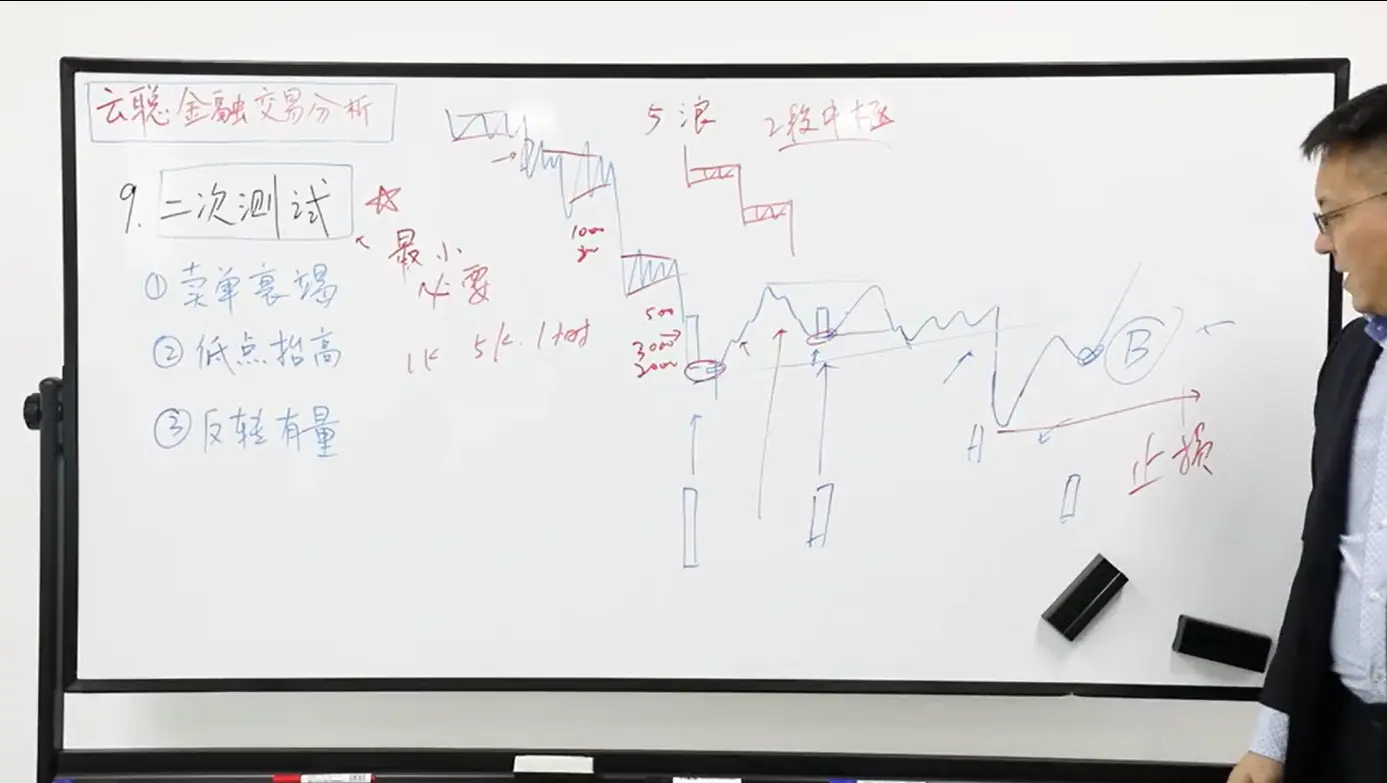 云聪·金融交易分析
9. 二次测试 ☆
最小
必要
① 卖单衰竭
② 低点抬高
③ 反转有量
1k 5k. 1小时
5浪 2段中枢
1000
500
3000
2000
A
B
止损